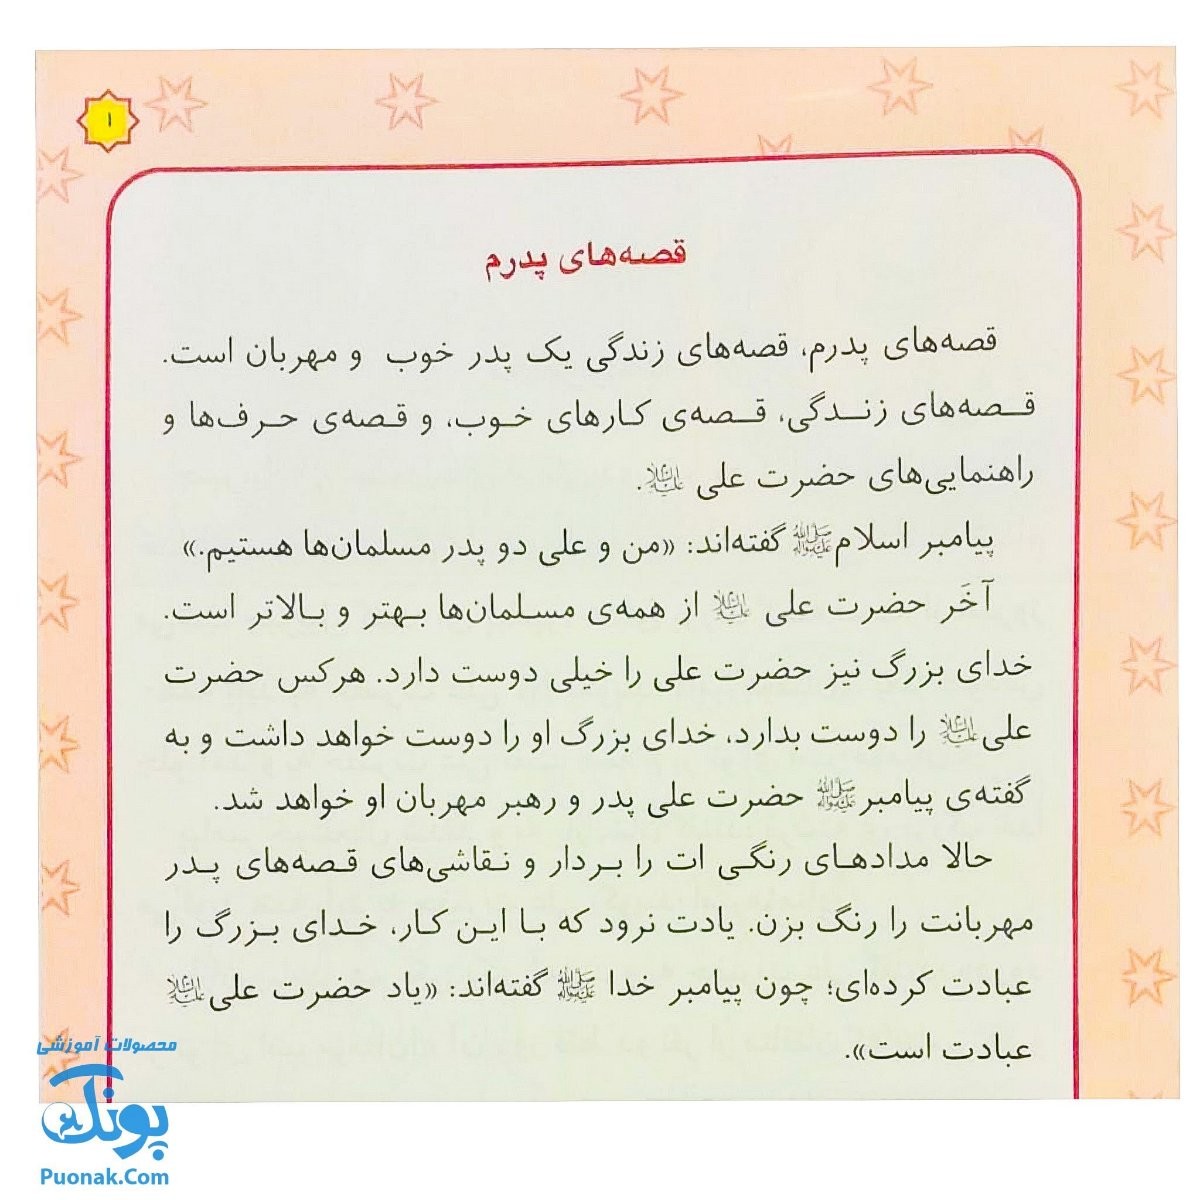 ۱
قصه‌های پدرم
قصه‌های پدرم، قصه‌های زندگی یک پدر خوب و مهربان است.
قصه‌های زندگی، قصه‌ی کارهای خوب، و قصه‌ی حرف‌ها و
راهنمایی‌های حضرت علی علیه‌السلام.
پیامبر اسلام ﷺ گفته‌اند: «من و علی دو پدر مسلمان‌ها هستیم.»
آخَر حضرت علی علیه‌السلام از همه‌ی مسلمان‌ها بهتر و بالاتر است.
خدای بزرگ نیز حضرت علی را خیلی دوست دارد. هرکس حضرت
علی علیه‌السلام را دوست بدارد، خدای بزرگ او را دوست خواهد داشت و به
گفته‌ی پیامبر ﷺ حضرت علی پدر و رهبر مهربان او خواهد شد.
حالا مدادهای رنگی ات را بردار و نقاشی‌های قصه‌های پدر
مهربانت را رنگ بزن. یادت نرود که با این کار، خدای بزرگ را
عبادت کرده‌ای؛ چون پیامبر خدا ﷺ گفته‌اند: «یاد حضرت علی علیه‌السلام
عبادت است».
محصولات آموزشی
پونک
Puonak.Com